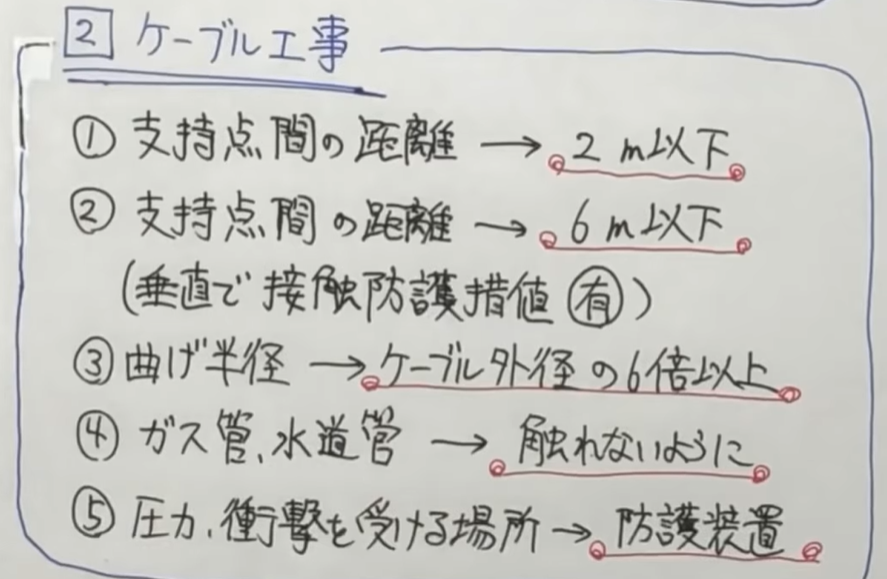 2 ケーブル工事
① 支持点間の距離 → 2 m以下
② 支持点間の距離 → 6 m以下
(垂直で接触防護措値 有)
③ 曲げ半径 → ケーブル外径の6倍以上
④ ガス管、水道管 → 触れないように
⑤ 圧力、衝撃を受ける場所 → 防護装置